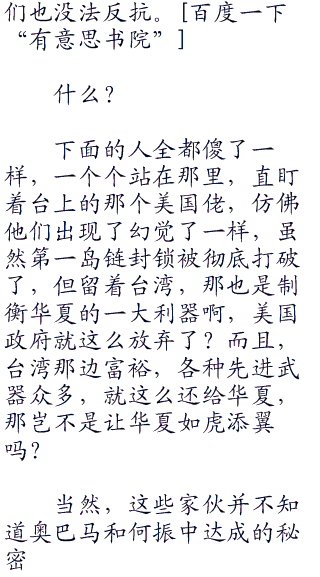 们也没法反抗。[百度一下
“有意思书院”]
什么?
下面的人全都傻了一
样，一个个站在那里，直盯
着台上的那个美国佬，仿佛
他们出现了幻觉了一样，虽
然第一岛链封锁被彻底打破
了，但留着台湾，那也是制
衡华夏的一大利器啊，美国
政府就这么放弃了?而且，
台湾那边富裕，各种先进武
器众多，就这么还给华夏，
那岂不是让华夏如虎添翼
吗?
当然，这些家伙并不知
道奥巴马和何振中达成的秘
密